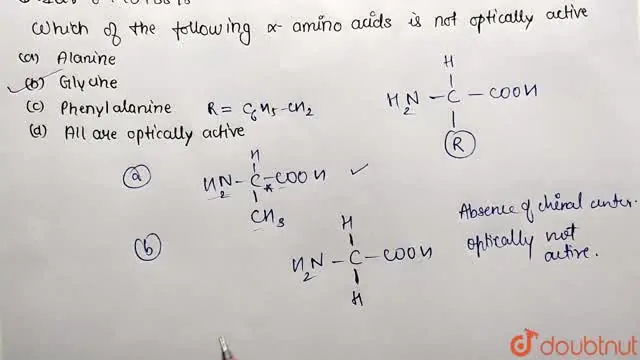 Which of the following α-amino acids is not optically active
(a) Alanine
(b) Glycine
(c) Phenylalanine R = C6H5-CH2
(d) All are optically active
H
H2N - C - COOH
R
(a)
H
H2N - C* - COOH ✓
CH3
(b)
H
H2N - C - COOH
H
Absence of chiral center.
optically not
active.
doubtnut